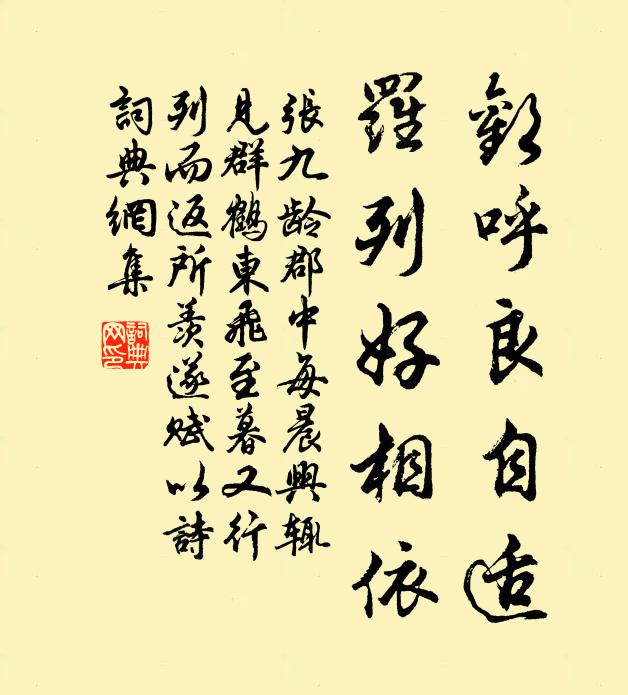 歡呼良自適
羅列好相依
張九齡郡中每晨興輒
見群鶴東飛至暮又行
列而返所羨遂賦以詩
詞典網集
詞典
网印